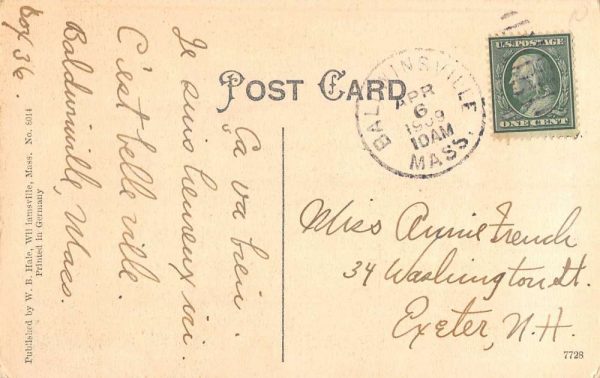 POST CARD
Ça va bien.
Je suis heureux ici.
C'est belle ville.
Baldwinville, Mass.
Box 36.
Published by W. B. Hale, Williamsville, Mass. No. 8014
Printed in Germany
BALDWINSVILLE
APR
6
1909
10AM
MASS.
U.S. POSTAGE
ONE CENT
Miss Annie French
34 Washington St.
Exeter, N.H.
7728